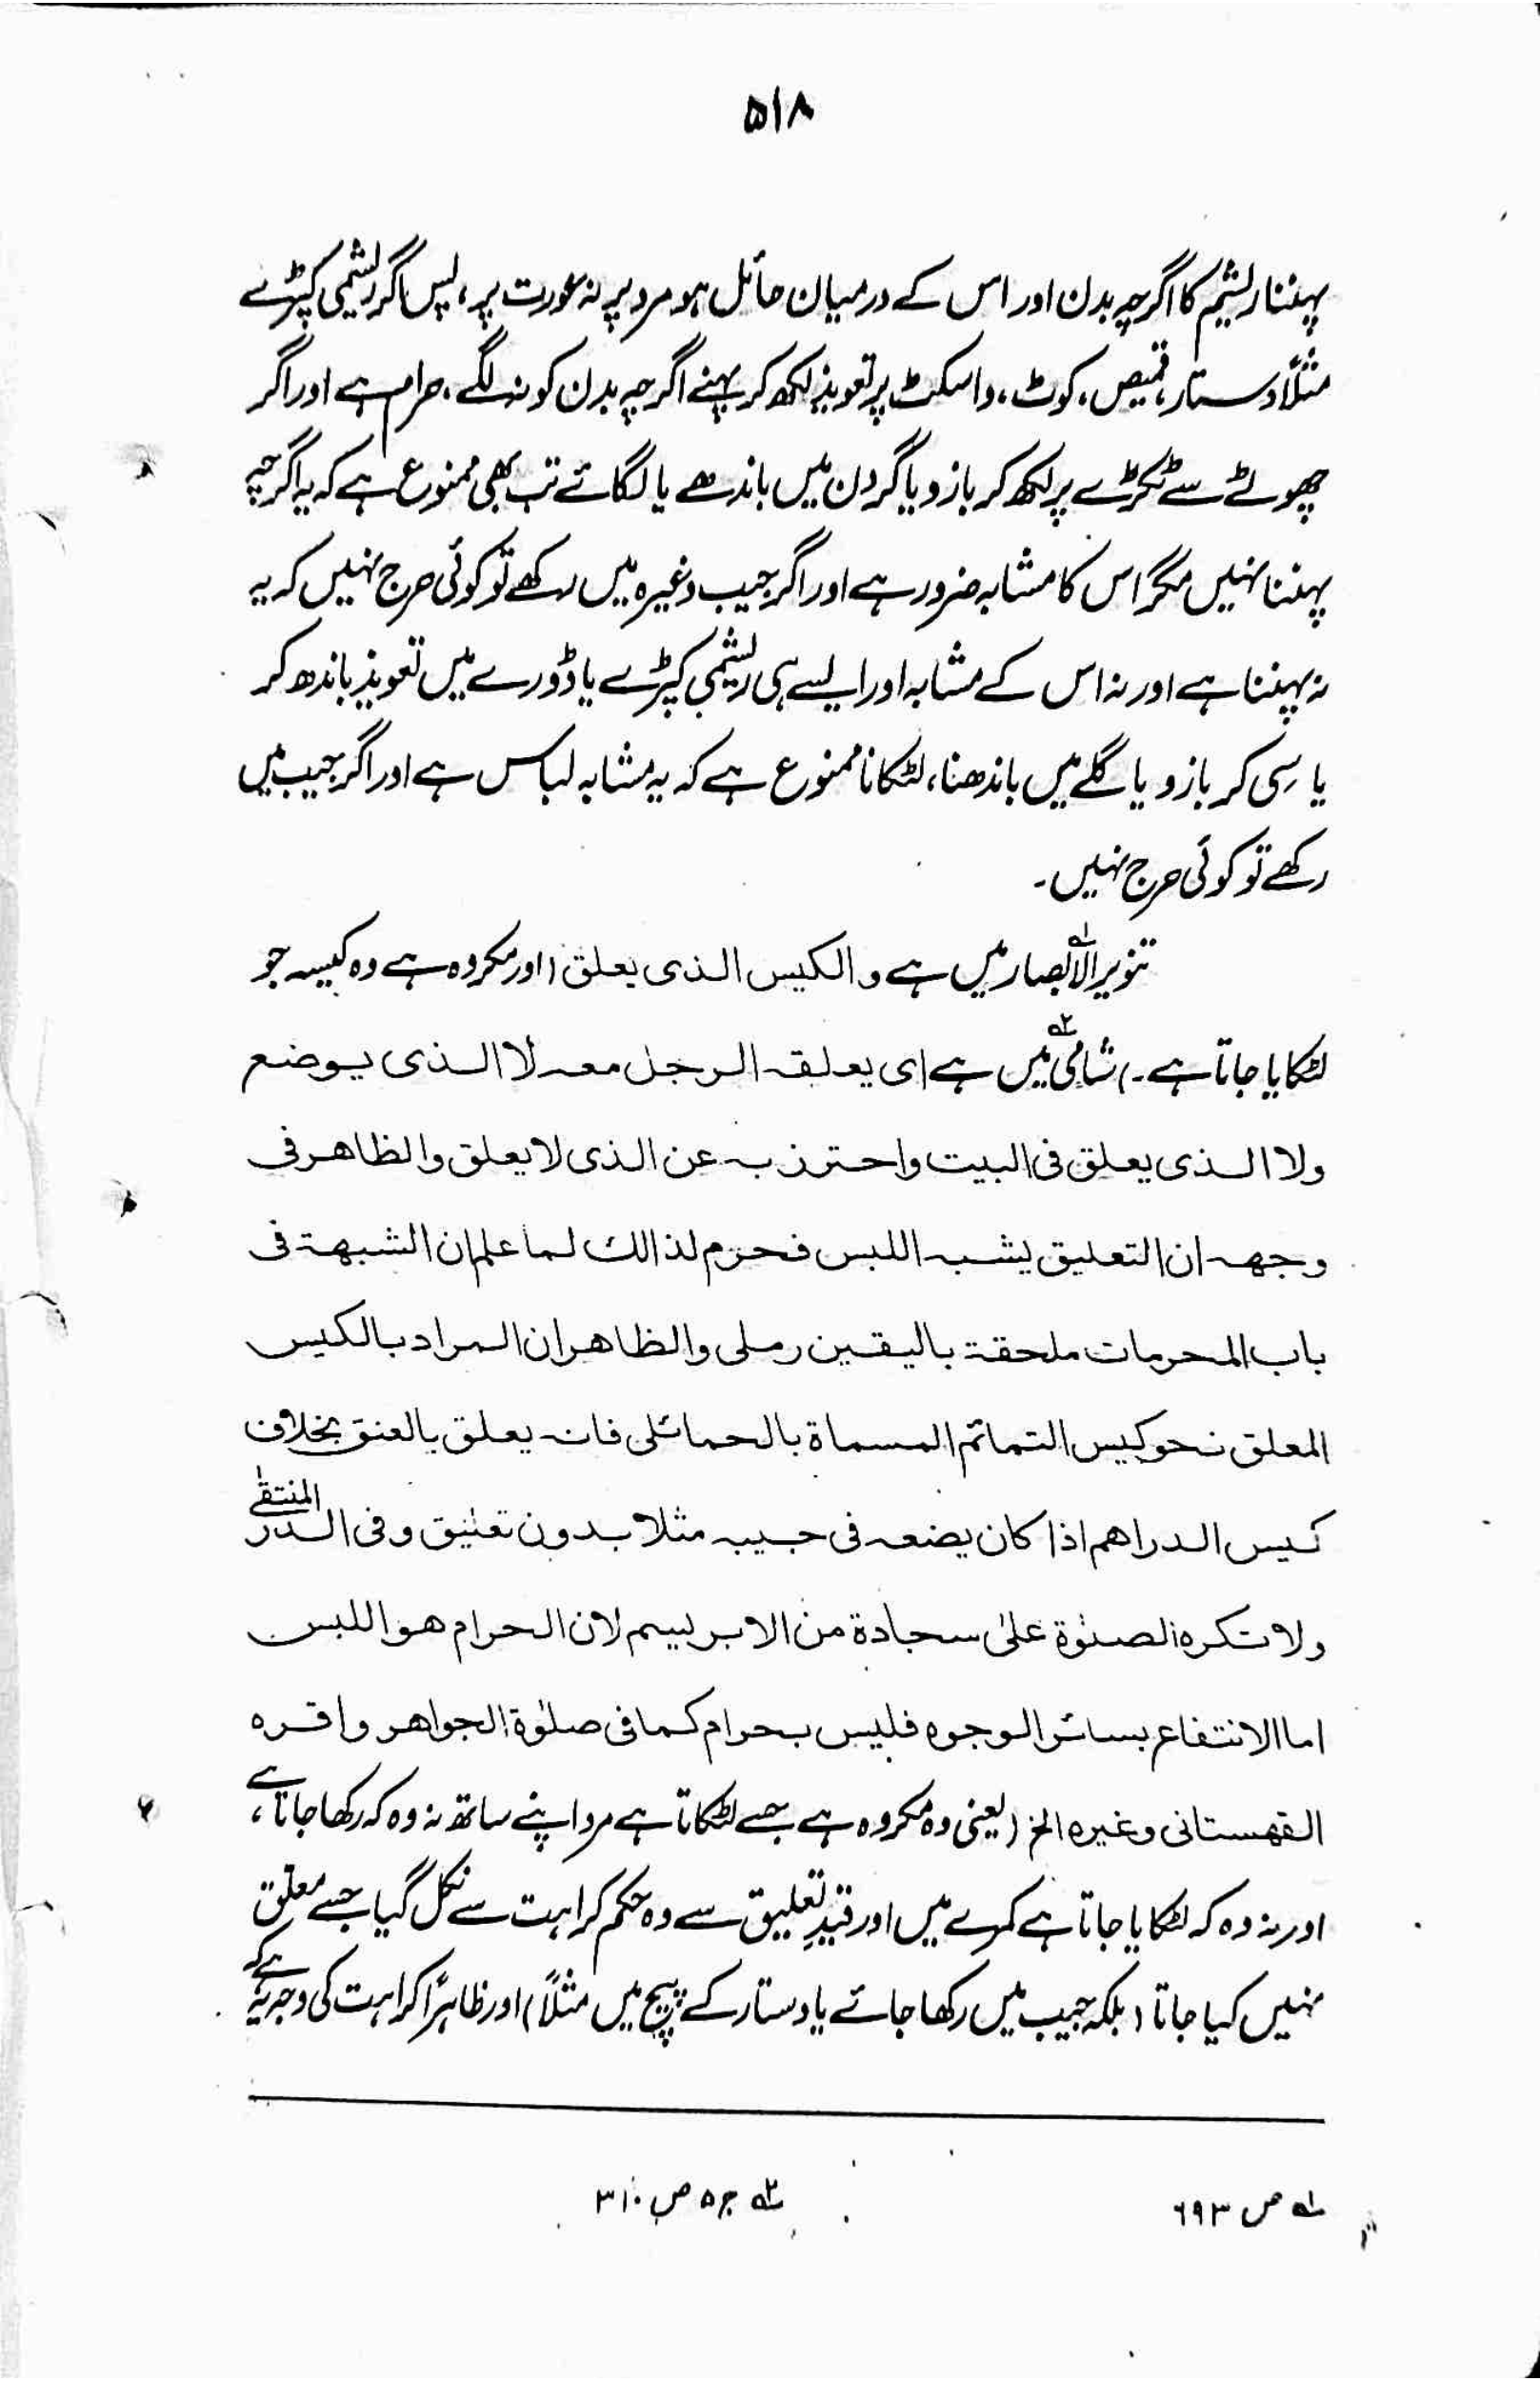 ۵۱۸
پہننا ریشم کا اگرچہ بدن اور اس کے درمیان حائل ہو مرد پر نہ عورت پر، پس اگر ریشمی کپڑے
مثلاً دستار، قمیص، کوٹ، واسکٹ پر تعویذ لکھ کر پہنے اگرچہ بدن کو نہ لگے، حرام ہے اور اگر
چھوٹے سے ٹکڑے پر لکھ کر بازو یا گردن میں باندھے یا لگائے تب بھی ممنوع ہے کہ یہ اگرچہ
پہننا نہیں مگر اس کا مشابہ ضرور ہے اور اگر جیب وغیرہ میں رکھے تو کوئی حرج نہیں کہ یہ
نہ پہننا ہے اور نہ اس کے مشابہ اور ایسے ہی ریشمی کپڑے یا ڈورے میں تعویذ باندھ کر
یا سِی کر بازو یا گلے میں باندھنا، لٹکانا ممنوع ہے کہ یہ مشابہ لباس ہے اور اگر جیب میں
رکھے تو کوئی حرج نہیں۔
تنویر الابصار۱؎ میں ہے والکیس الذی یعلق (اور مکروہ ہے وہ کیسہ جو
لٹکایا جاتا ہے۔) شامی۲؎ میں ہے ای یعلقہ الرجل معہ لا الذی یوضع
ولا الذی یعلق فی البیت واحترز بہ عن الذی لا یعلق والظاهر فی
وجهہ ان التعلیق یشبہ اللبس فحرم لذالك لما علم ان الشبهۃ فی
باب المحرمات ملحقۃ بالیقین رملی والظاهر ان المراد بالکیس
المعلق نحو کیس التمائم المسماۃ بالحمائلی فانہ یعلق بالعنق بخلاف
کیس الدراهم اذا کان یضعہ فی جیبہ مثلا بدون تعلیق وفی الدر المنتقٰی
ولا تکرہ الصلٰوۃ علیٰ سجادۃ من الابریسم لان الحرام هو اللبس
اما الانتفاع بسائر الوجوہ فلیس بحرام کما فی صلٰوۃ الجواهر واقرہ
القهستانی وغیرہ الخ (یعنی وہ مکروہ ہے جسے لٹکاتا ہے مرد اپنے ساتھ نہ وہ کہ رکھا جاتا ہے،
اور نہ وہ کہ لٹکایا جاتا ہے کمرے میں اور قیدِ تعلیق سے وہ حکم کراہت سے نکل گیا جسے معلق
نہیں کیا جاتا (بلکہ جیب میں رکھا جائے یا دستار کے پیچ میں مثلاً) اور ظاہراً کراہت کی وجہ یہ ہے کہ
۱؎ ص ۶۹۳
۲؎ ج ۵ ص ۳۱۰